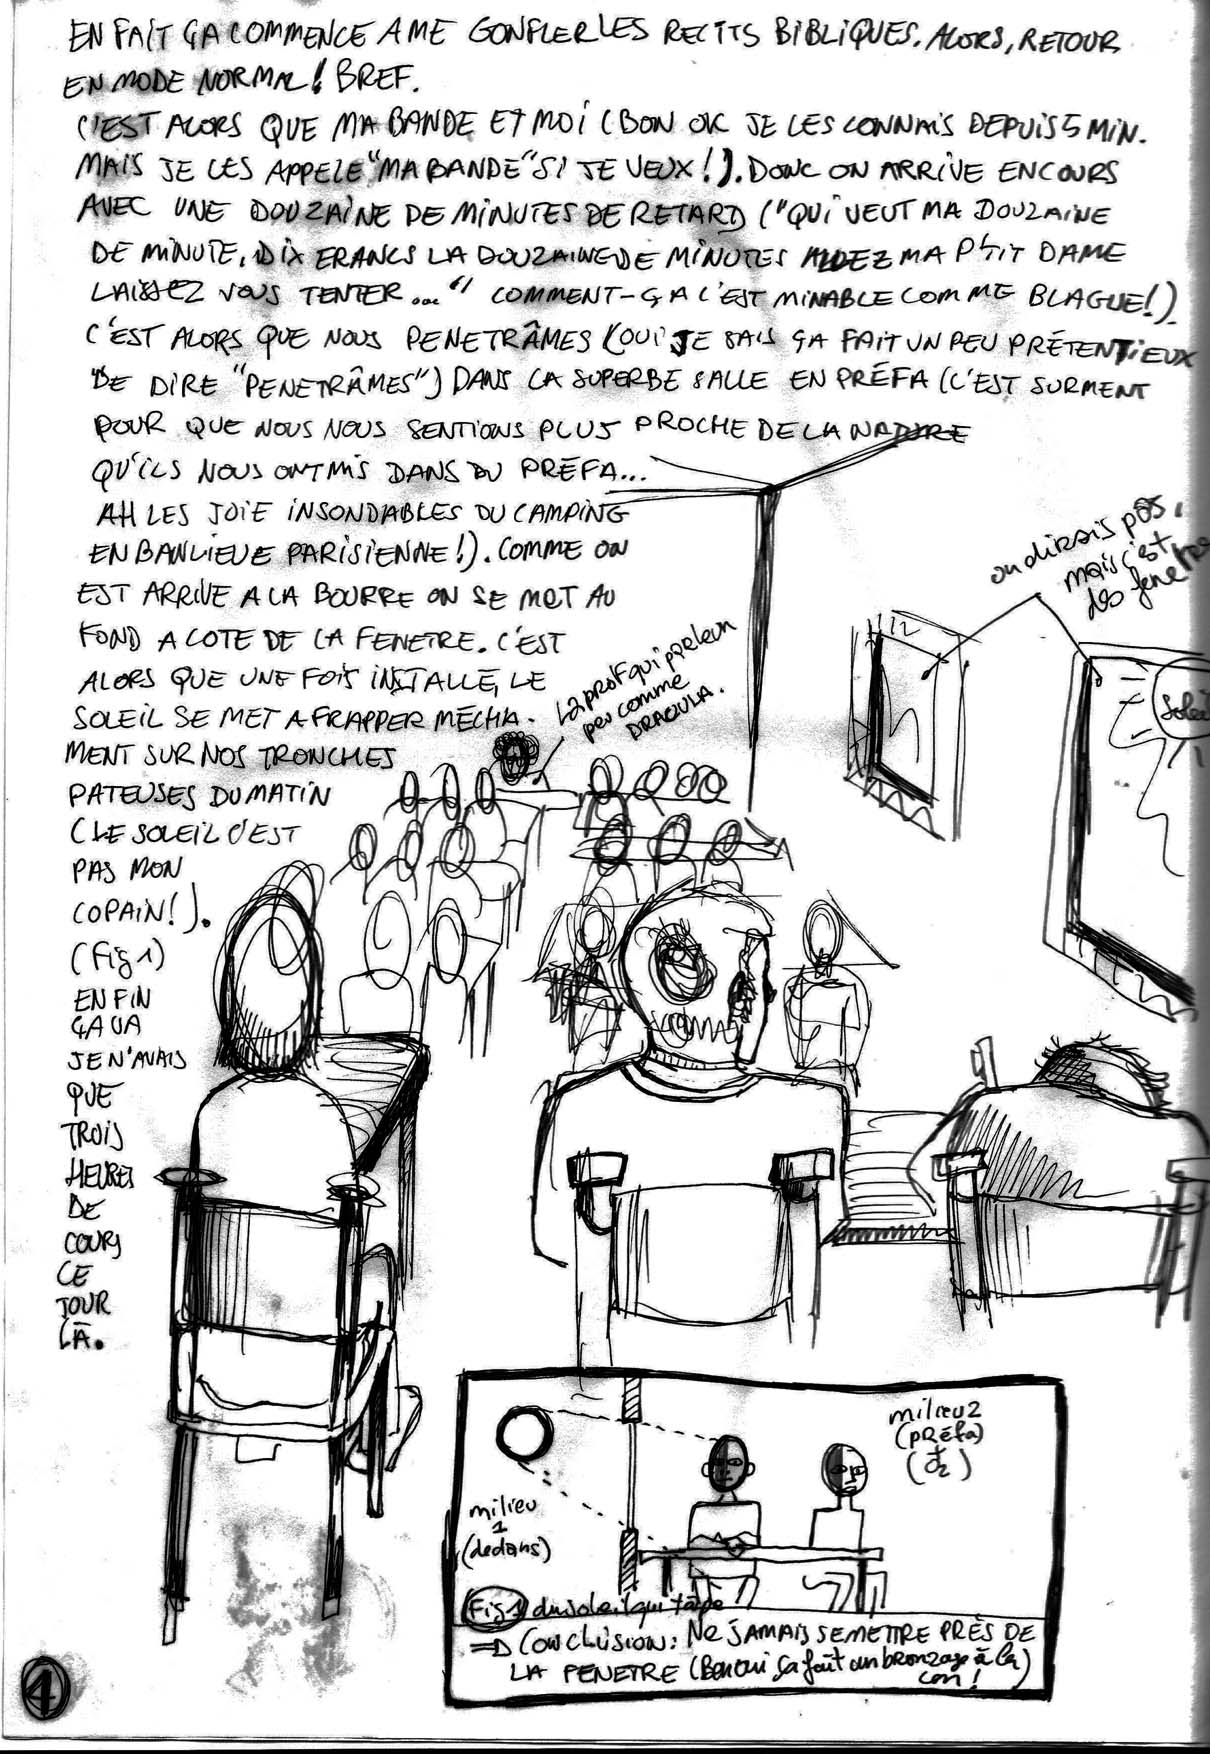 EN FAIT ÇA COMMENCE A ME GONFLER LES RECITS BIBLIQUES. ALORS, RETOUR
EN MODE NORMAL! BREF.
C'EST ALORS QUE MA BANDE ET MOI (BON OK JE LES CONNAIS DEPUIS 5 MIN.
MAIS JE LES APPELE "MA BANDE" SI JE VEUX!). DONC ON ARRIVE EN COURS
AVEC UNE DOUZAINE DE MINUTES DE RETARD ("QUI VEUT MA DOUZAINE
DE MINUTE, DIX FRANCS LA DOUZAINE DE MINUTES ALLEZ MA P'TIT DAME
LAISSEZ VOUS TENTER..." COMMENT-ÇA C'EST MINABLE COMME BLAGUE!).
C'EST ALORS QUE NOUS PENETRÂMES (OUI JE SAIS ÇA FAIT UN PEU PRÉTENTIEUX
DE DIRE "PENETRÂMES") DANS LA SUPERBE SALLE EN PRÉFA (C'EST SURMENT
POUR QUE NOUS NOUS SENTIONS PLUS PROCHE DE LA NATURE
QU'ILS NOUS ONT MIS DANS DU PRÉFA...
AH LES JOIE INSONDABLES DU CAMPING
EN BANLIEUE PARISIENNE!). COMME ON
EST ARRIVE A LA BOURRE ON SE MET AU
FOND A COTE DE LA FENETRE. C'EST
ALORS QUE UNE FOIS INSTALLE, LE
SOLEIL SE MET A FRAPPER MÉCHA-
MENT SUR NOS TRONCHES
PATEUSES DU MATIN
(LE SOLEIL C'EST
PAS MON
COPAIN!).
(Fig 1)
ENFIN
ÇA VA
JE N'AVAIS
QUE
TROIS
HEURES
DE
COURS
CE
JOUR
LÀ.
on dirais pas,
mais c'est
des fenetres
Soleil
La prof qui parle un
peu comme
DRACULA.
milieu 2
(PRéfa)
milieu
1
(dedans)
Fig 1 du soleil qui tape
=> CONCLUSION: NE JAMAIS SE METTRE PRÈS DE
LA FENETRE (Ben oui ça fait un bronzage à la
con!)
1